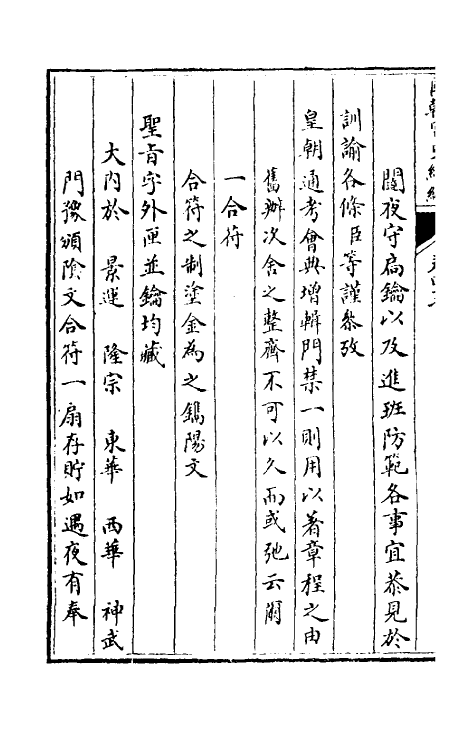 閽夜守扃鑰以及進班防範各事宜恭見於
訓諭各條臣等謹恭攷
皇朝通考會典增輯門禁一則用以著章程之由
舊辦次舍之整齊不可以久而或弛云爾
一合符
合符之制塗金為之鐫陽文
聖旨字外匣並鑰均藏
大內於 景運 隆宗 東華 西華 神武
門豫頒陰文合符一扇存貯如遇夜有奉